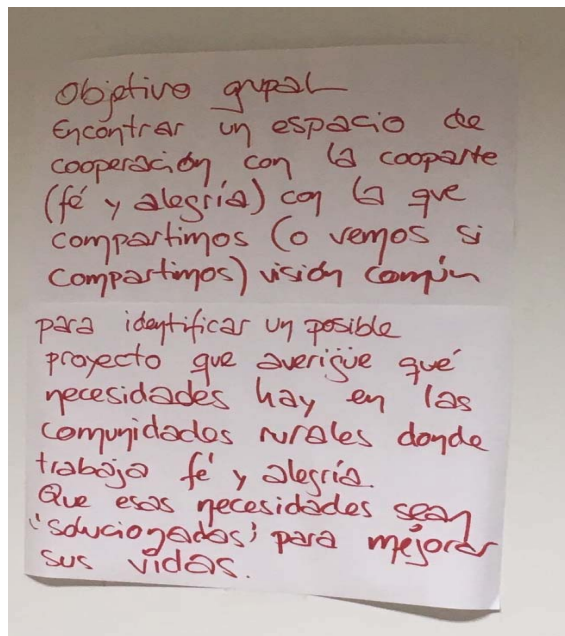 Objetivo grupal
Encontrar un espacio de
cooperación con la cooparte
(fé y alegría) con la que
compartimos (o vemos si
compartimos) visión común
para identificar un posible
proyecto que averigüe qué
necesidades hay en las
comunidades rurales donde
trabaja fé y alegría.
Que esas necesidades sean
'solucionadas' para mejorar
sus vidas.